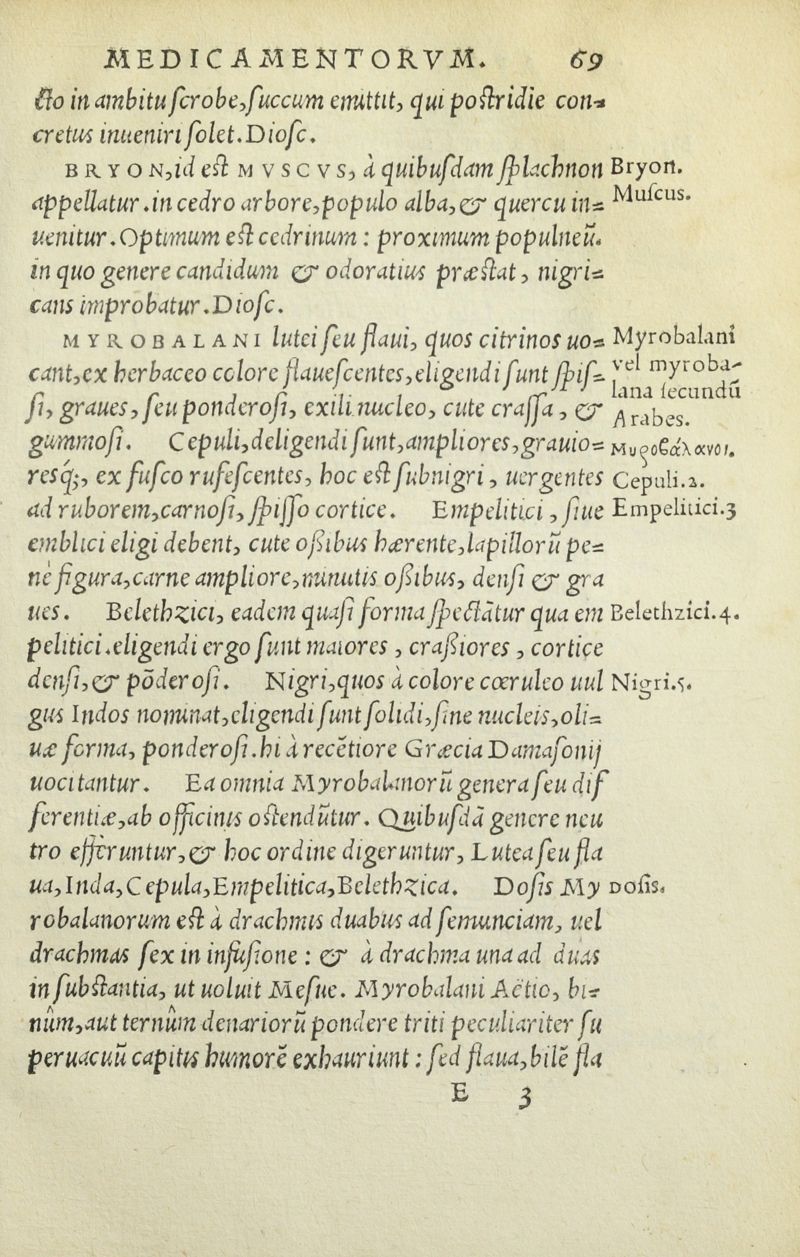 MEDICAMENTORVM. 69
ſto in ambitu ſcrobe, ſuccum emittit, qui poſtridie con-
cretus inueniri ſolet. Dioſc.
BRYON, id eſt MVSCVS, à quibuſdam ſplachnon
Bryon.
appellatur. in cedro arbore, populo alba, & quercu in=
Muſcus.
uenitur. Optimum eſt cedrinum: proximum populneū.
in quo genere candidum & odoratius præſtat, nigri=
cans improbatur. Dioſc.
MYROBALANI lutei ſeu flaui, quos citrinos uo=
Myrobalani
cant, ex herbaceo colore flaueſcentes, eligendi ſunt ſpiſ=
vel myroba-
lana ſecundū
ſi, graues, ſeu ponderoſi, exili nucleo, cute craſſa, &
Arabes.
gummoſi. Cepuli, deligendi ſunt, ampliores, grauio=
Μυροβάλανοι.
resq;, ex fuſco rufeſcentes, hoc eſt ſubnigri, uergentes
Cepuli.2.
ad ruborem, carnoſi, ſpiſſo cortice. Empelitici, ſiue
Empelitici.3
emblici eligi debent, cute oſsibus hærente, lapillorū pe=
nè figura, carne ampliore, minutis oſsibus, denſi & gra
ues. Belethzici, eadem quaſi forma ſpectātur qua em
Belethzici.4.
pelitici. eligendi ergo ſunt maiores, craſsiores, cortice
denſi, & pōderoſi. Nigri, quos à colore cœruleo uul
Nigri.5.
gus Indos nominat, eligendi ſunt ſolidi, ſine nucleis, oli=
uæ forma, ponderoſi. hi à recētiore Græcia Damaſonij
uocitantur. Ea omnia Myrobalanorū genera ſeu dif
ferentiæ, ab officinis oſtendūtur. Quibuſdā genere neu
tro efferuntur, & hoc ordine digeruntur, Lutea ſeu fla
ua, Inda, Cepula, Empelitica, Belethzica. Doſis My
Doſis.
robalanorum eſt à drachmis duabus ad ſemunciam, uel
drachmas ſex in infuſione: & à drachma una ad duas
in ſubſtantia, ut uoluit Meſue. Myrobalani Aëtio, bi-
nûm, aut ternûm denariorū pondere triti peculiariter ſu
peruacuū capitis humorē exhauriunt: ſed flaua, bilē fla
E 3